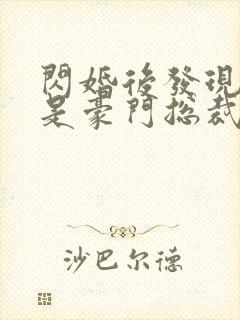 閃婚後發現
是豪門總裁
沙巴尔德